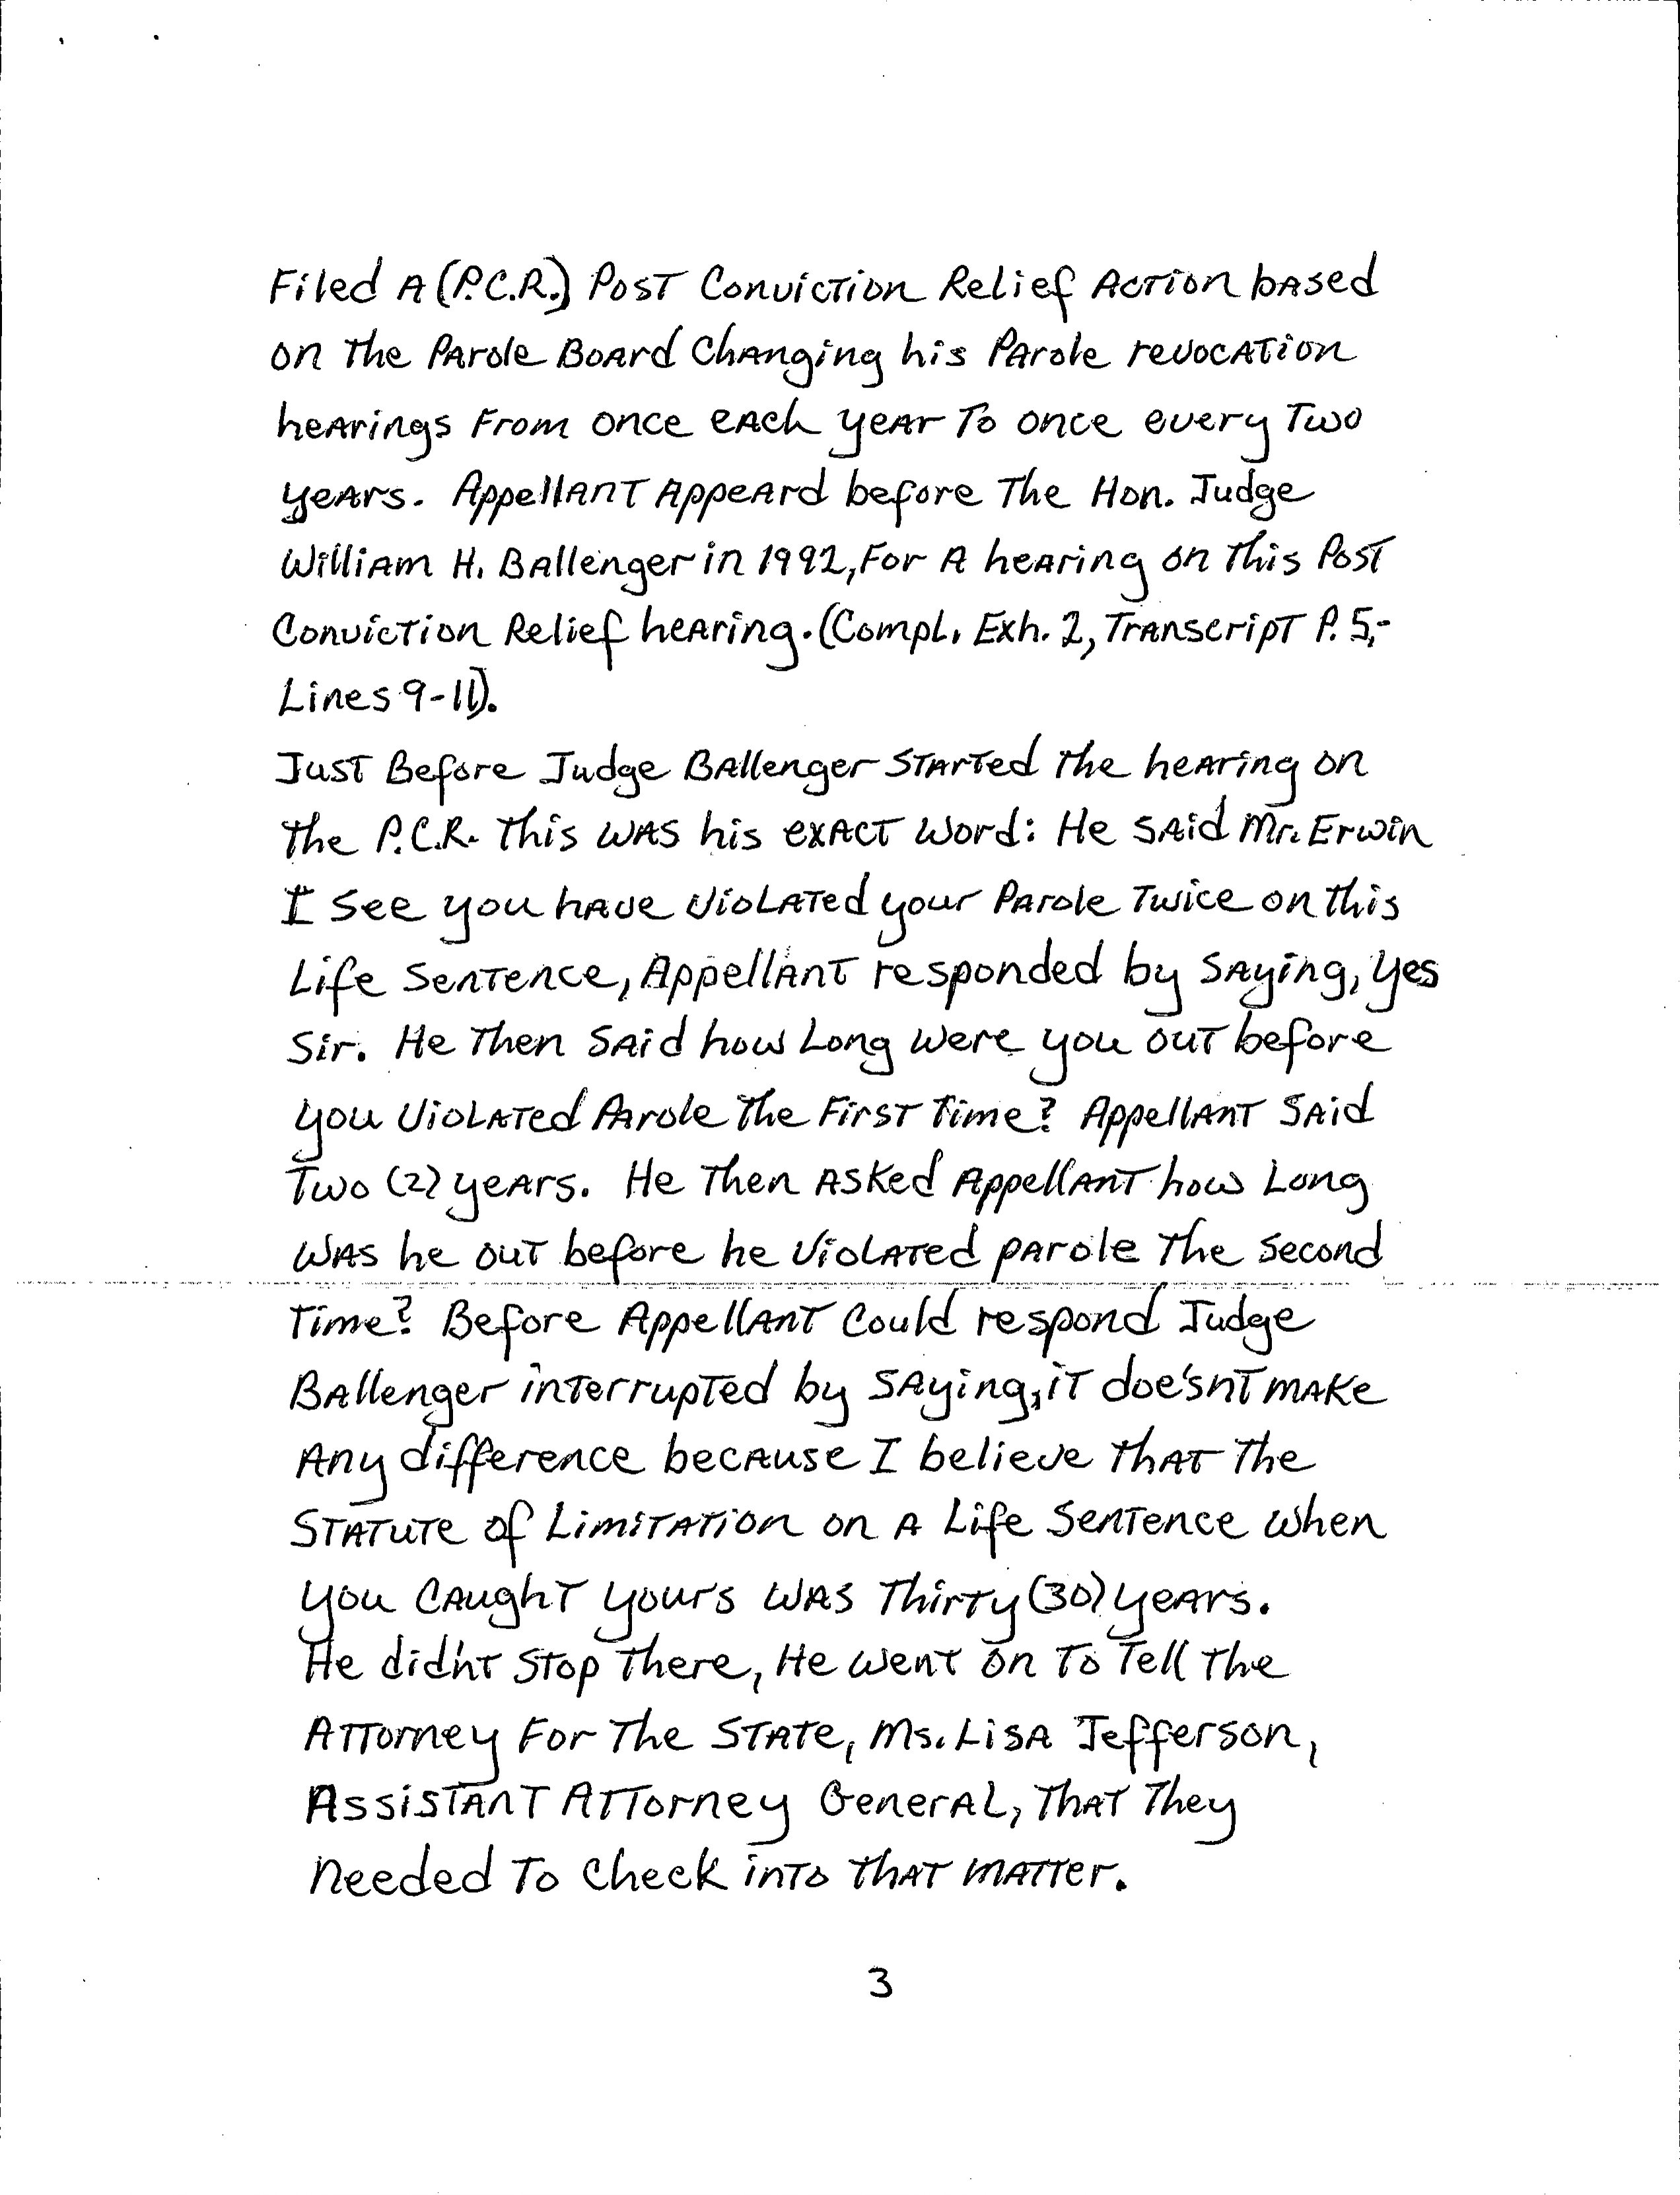 Filed A (P.C.R.) Post Conviction Relief Action based
on The Parole Board Changing his Parole revocation
hearings From once each year To once every Two
years. Appellant Appeard before The Hon. Judge
William H. Ballenger in 1992, For A hearing on This Post
Conviction Relief hearing. (Compl. Exh. 2, Transcript P. 5,-
Lines 9-11).
Just Before Judge Ballenger Started The hearing on
The P.C.R. This was his exact word: He said Mr. Erwin
I see you have violated your Parole Twice on this
Life Sentence, Appellant responded by saying, yes
Sir. He Then Said how Long were you out before
you violated Parole The First Time? Appellant Said
Two (2) years. He Then Asked Appellant how Long
was he out before he violated parole The second
Time? Before Appellant Could respond Judge
Ballenger interrupted by saying, it doe'snt make
Any difference because I believe That The
Statute of Limitation on A Life Sentence when
you caught yours was Thirty (30) years.
He did'nt Stop There, He went on To Tell The
Attorney For The State, Ms. Lisa Jefferson,
Assistant Attorney General, That They
needed To check into That matter.
3